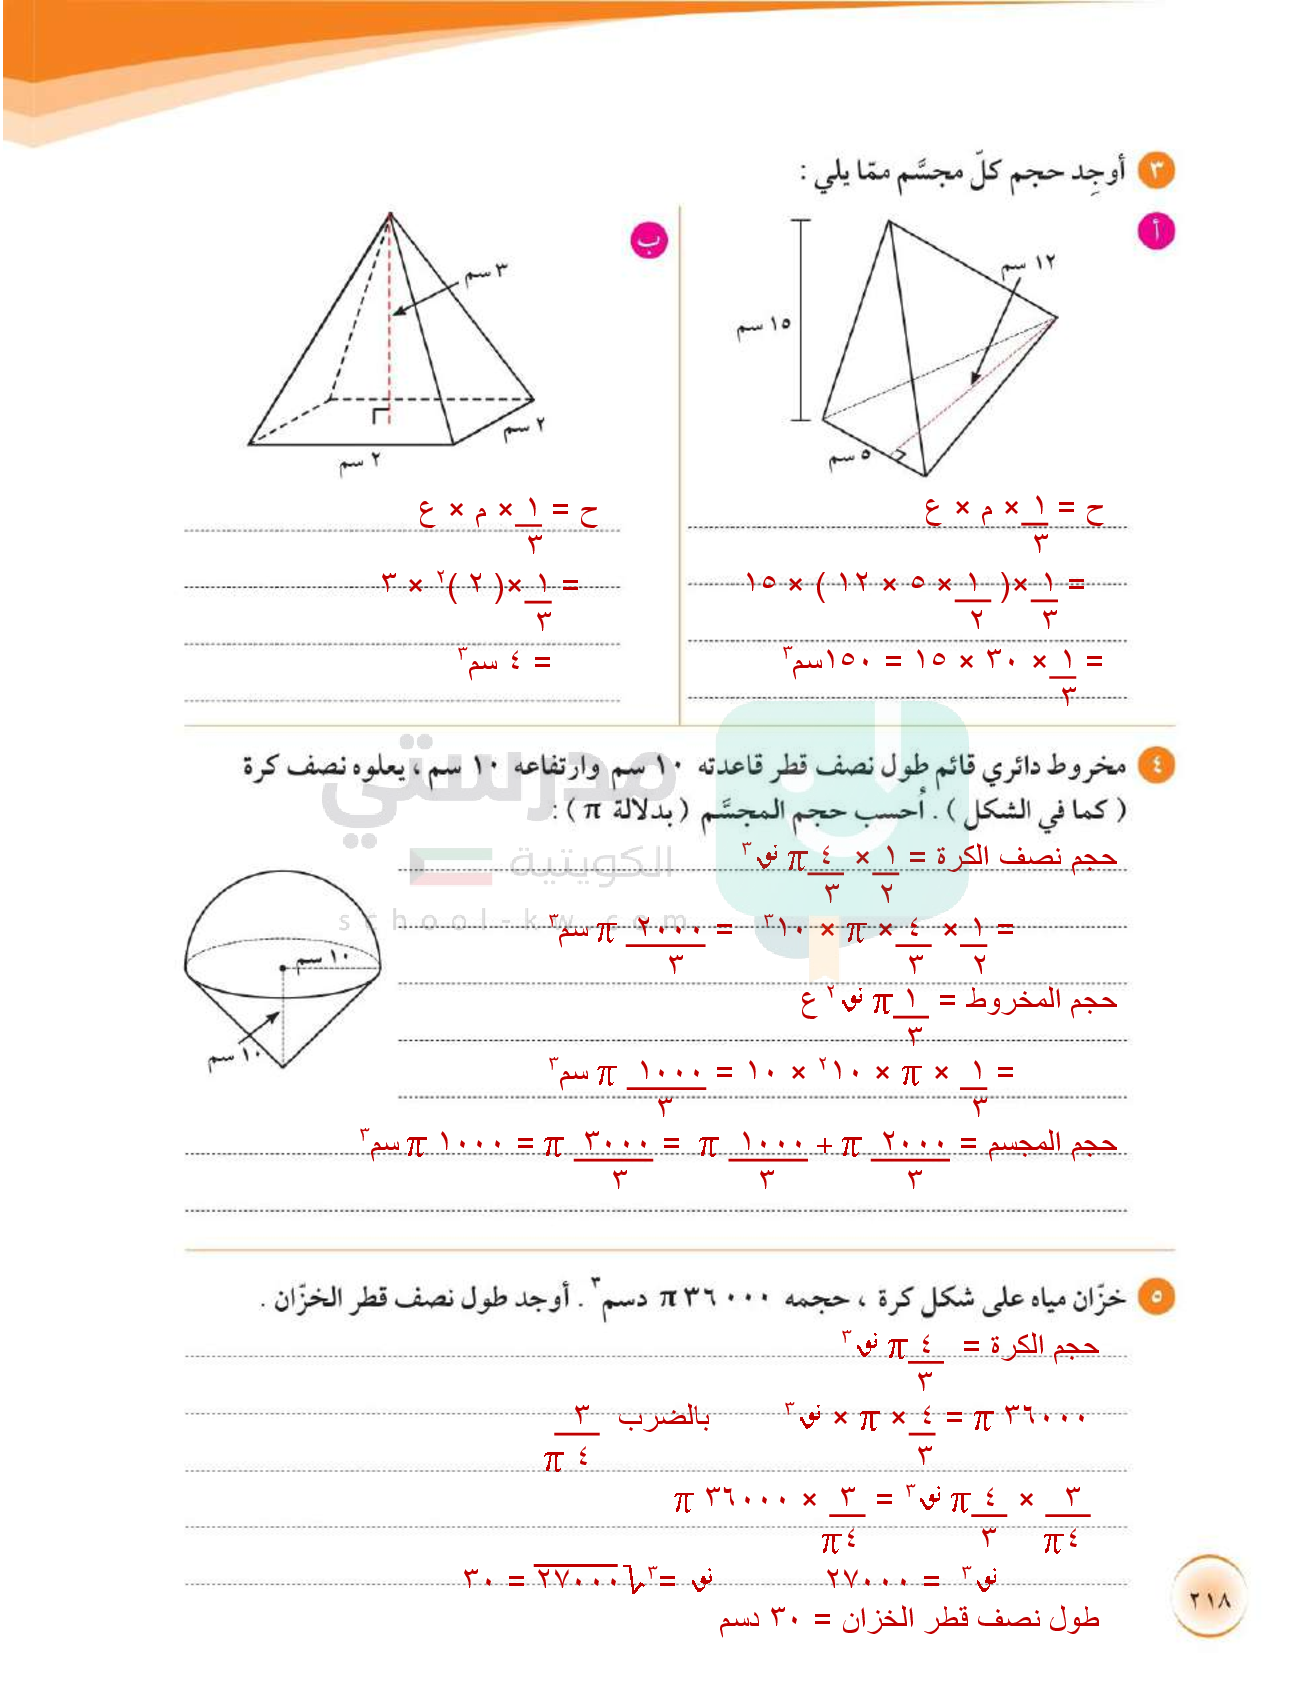 ٣ أوجِد حجم كلّ مجسَّم ممّا يلي :
أ
١٢ سم
١٥ سم
٥ سم
ح = ١/٣ × م × ع
= ١/٣ ×( ١/٢ × ٥ × ١٢ ) × ١٥
= ١/٣ × ٣٠ × ١٥ = ١٥٠سم٣
ب
٣ سم
٢ سم
٢ سم
ح = ١/٣ × م × ع
= ١/٣ ×( ٢ )٢ × ٣
= ٤ سم٣
مدرستي
الكويتية
school-kw.com
٤ مخروط دائري قائم طول نصف قطر قاعدته ١٠ سم وارتفاعه ١٠ سم ، يعلوه نصف كرة
( كما في الشكل ) . اُحسب حجم المجسَّم ( بدلالة π ) :
١٠ سم
١٠ سم
حجم نصف الكرة = ١/٢ × ٤/٣ π نق٣
= ١/٢ × ٤/٣ × π × ١٠٣ = ٢٠٠٠/٣ π سم٣
حجم المخروط = ١/٣ π نق٢ ع
= ١/٣ × π × ١٠٢ × ١٠ = ١٠٠٠/٣ π سم٣
حجم المجسم = ٢٠٠٠/٣ π + ١٠٠٠/٣ π = ٣٠٠٠/٣ π = ١٠٠٠ π سم٣
٥ خزّان مياه على شكل كرة ، حجمه ٣٦٠٠٠ π دسم٣ . أوجد طول نصف قطر الخزّان .
حجم الكرة = ٤/٣ π نق٣
٣٦٠٠٠ π = ٤/٣ × π × نق٣ بالضرب ٣/٤ π
٣/٤π × ٤/٣ π نق٣ = ٣/٤π × ٣٦٠٠٠ π
نق٣ = ٢٧٠٠٠ نق = ٣√٢٧٠٠٠ = ٣٠
طول نصف قطر الخزان = ٣٠ دسم
٢١٨